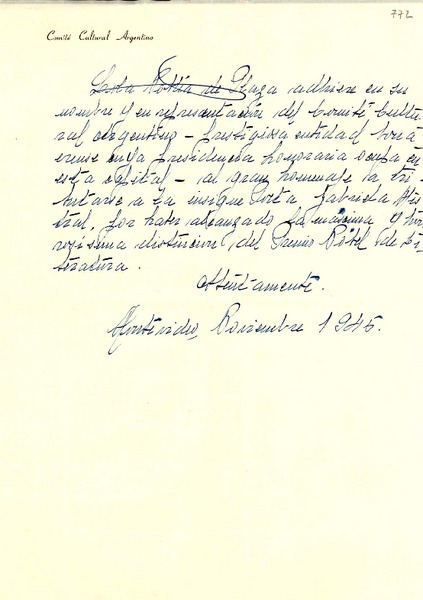 772
Comité Cultural Argentino
de Plaza adhiere en su
nombre y en representación del Comité Cultu-
ral Argentino – prestigiosa entidad bona
erense cuya presidencia honoraria ocupa en
esta capital – al gran homenaje a tri-
butarse a la insigne poeta Gabriela Mis
tral, por haber alcanzado la máxima y
distinción, del Premio Nobel de Li-
teratura.
Atentamente.
Montevideo, Noviembre 1945.